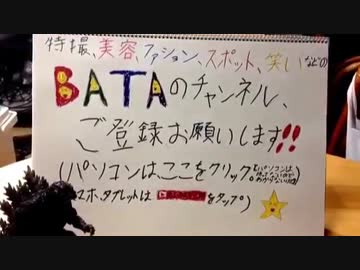 特撮、美容、ファション、スポット、笑いなどの
BATAのチャンネル、
ご登録お願いします!!
(パソコンはここをクリック。
スマホ、タブレットは をタップ)